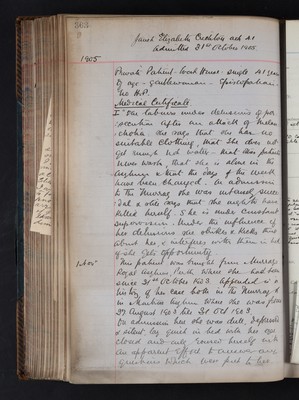 363
Janet Elizabeth aet 41
Admitted 31st October 1905
1905
Private Patient - Single 41 years
of age - gentlewoman - Episcopalian -
No H.P.
Medical Certificate
I "She labours under delusions of per-
secution after an attack of Melan-
cholia. She says that she has no
suitable clothing, that she does not
get enough hot water that the patients
never wash, that she is alone in the
Asylum & that the days of the week
have been changed. On admission
to the Murray she was suicidal
& she says that she might have
killed herself. She is under constant
supervision. Under the influence of
her delusions she strikes & kicks those
about her, & interferes with them in bed
if she gets opportunity
1. Nov
This patient was brought from Murray
Royal Asylum, Perth where she had been
since 31st October 1903. Appended is a
history of her case both in the Murray &
in Asylum where she was from
27 August 1903 till 31st Oct 1903.
On admission here she was dull, depressed
& silent lay quiet in bed with her eyes
closed and only roused herself with
an apparent effort to answer any
questions which were put to her